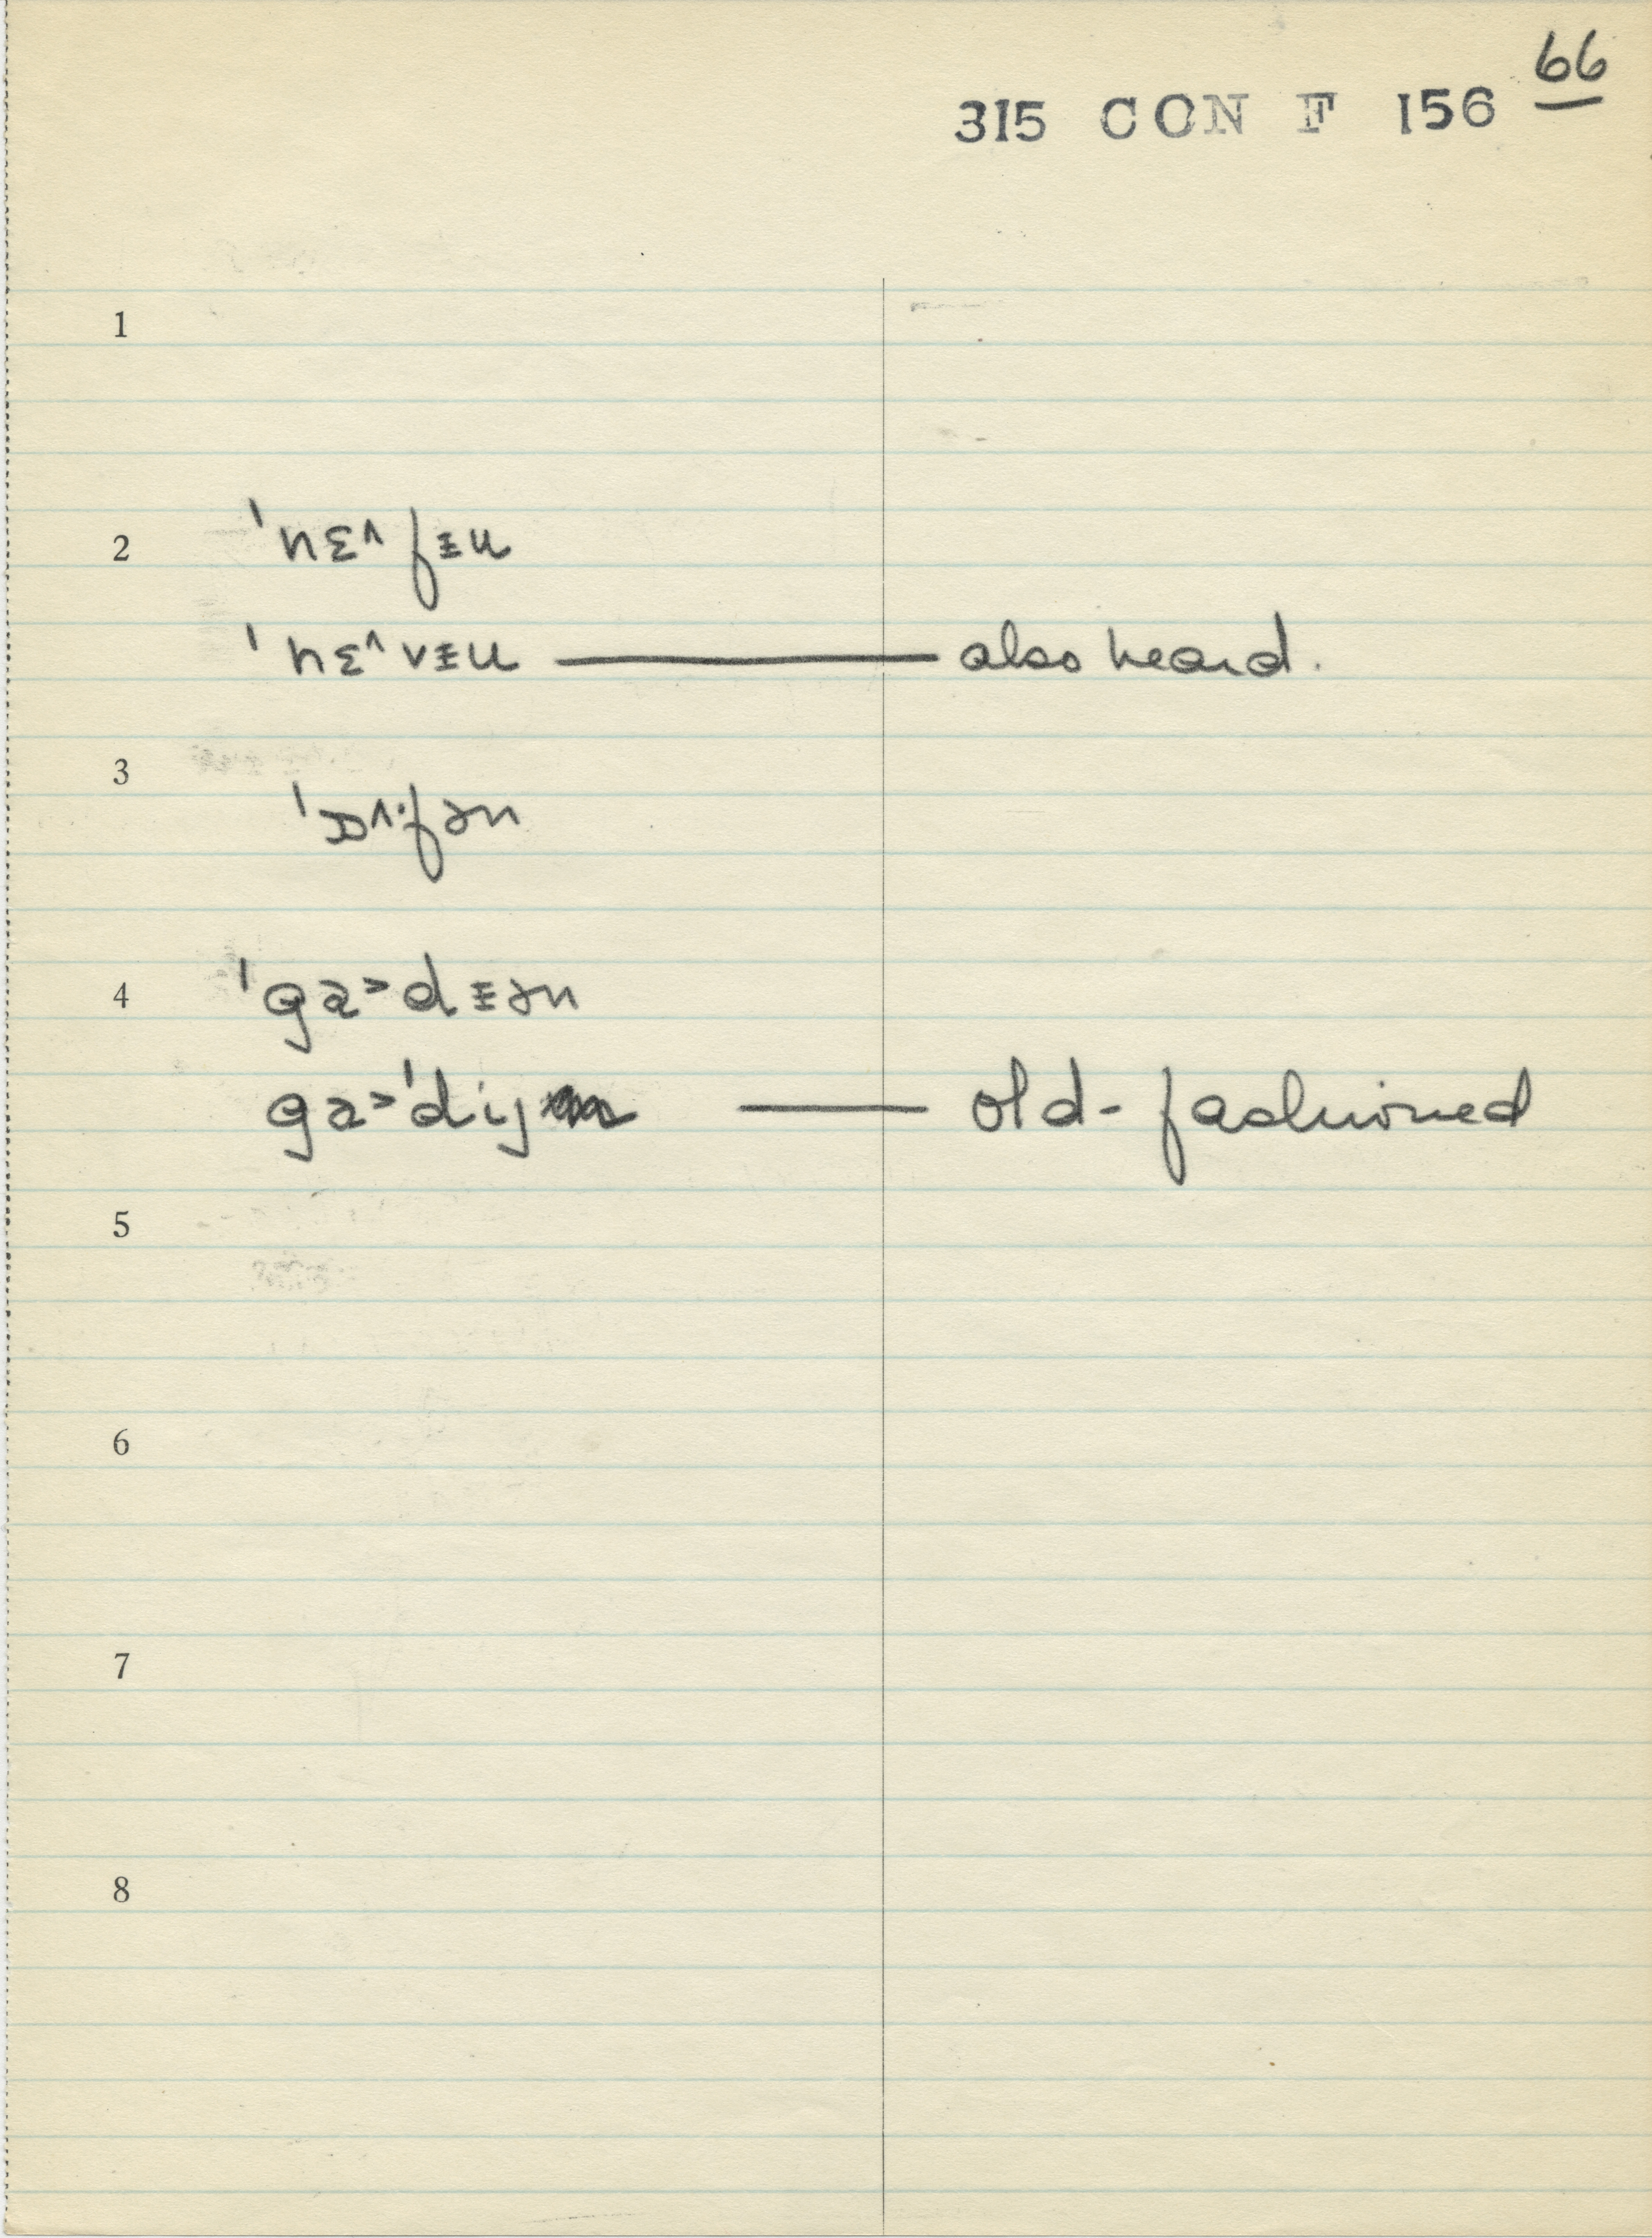 66
315 CON F 156
1
2 'nɛ^fɪu
'nɛ^vɪu — also heard.
3 'ɒ^·fən
4 'ga>dɪən
ga>'dij — old-fashioned
5
6
7
8